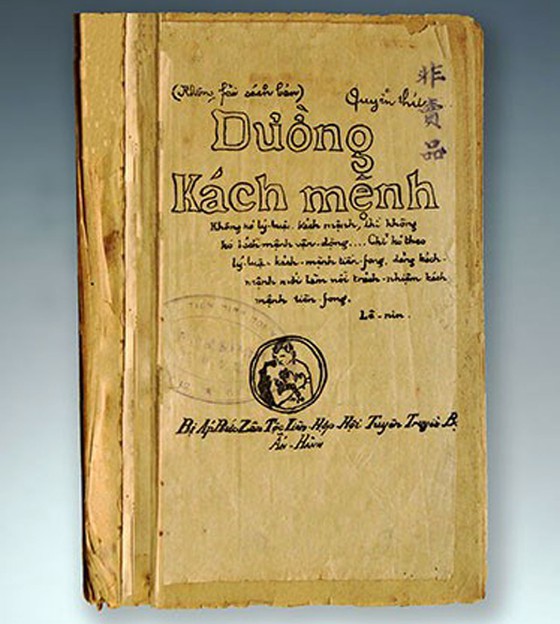 (Không fải sách bán) Quyển thứ
非賣品
Dường
Kách mệnh
Không kó lý-luận kách mệnh, thì không
kó kách mệnh vận-động.... Chỉ kó theo
lý-luận kách-mệnh tiền-fong, đảng kách-
mệnh mới làm nổi trách-nhiệm kách
mệnh tiền-fong.
Lê-nin.
Bị Áp Bức Zân Tộc Liên Hợp Hội Tuyên Truyền Bộ
Ấn-Hành